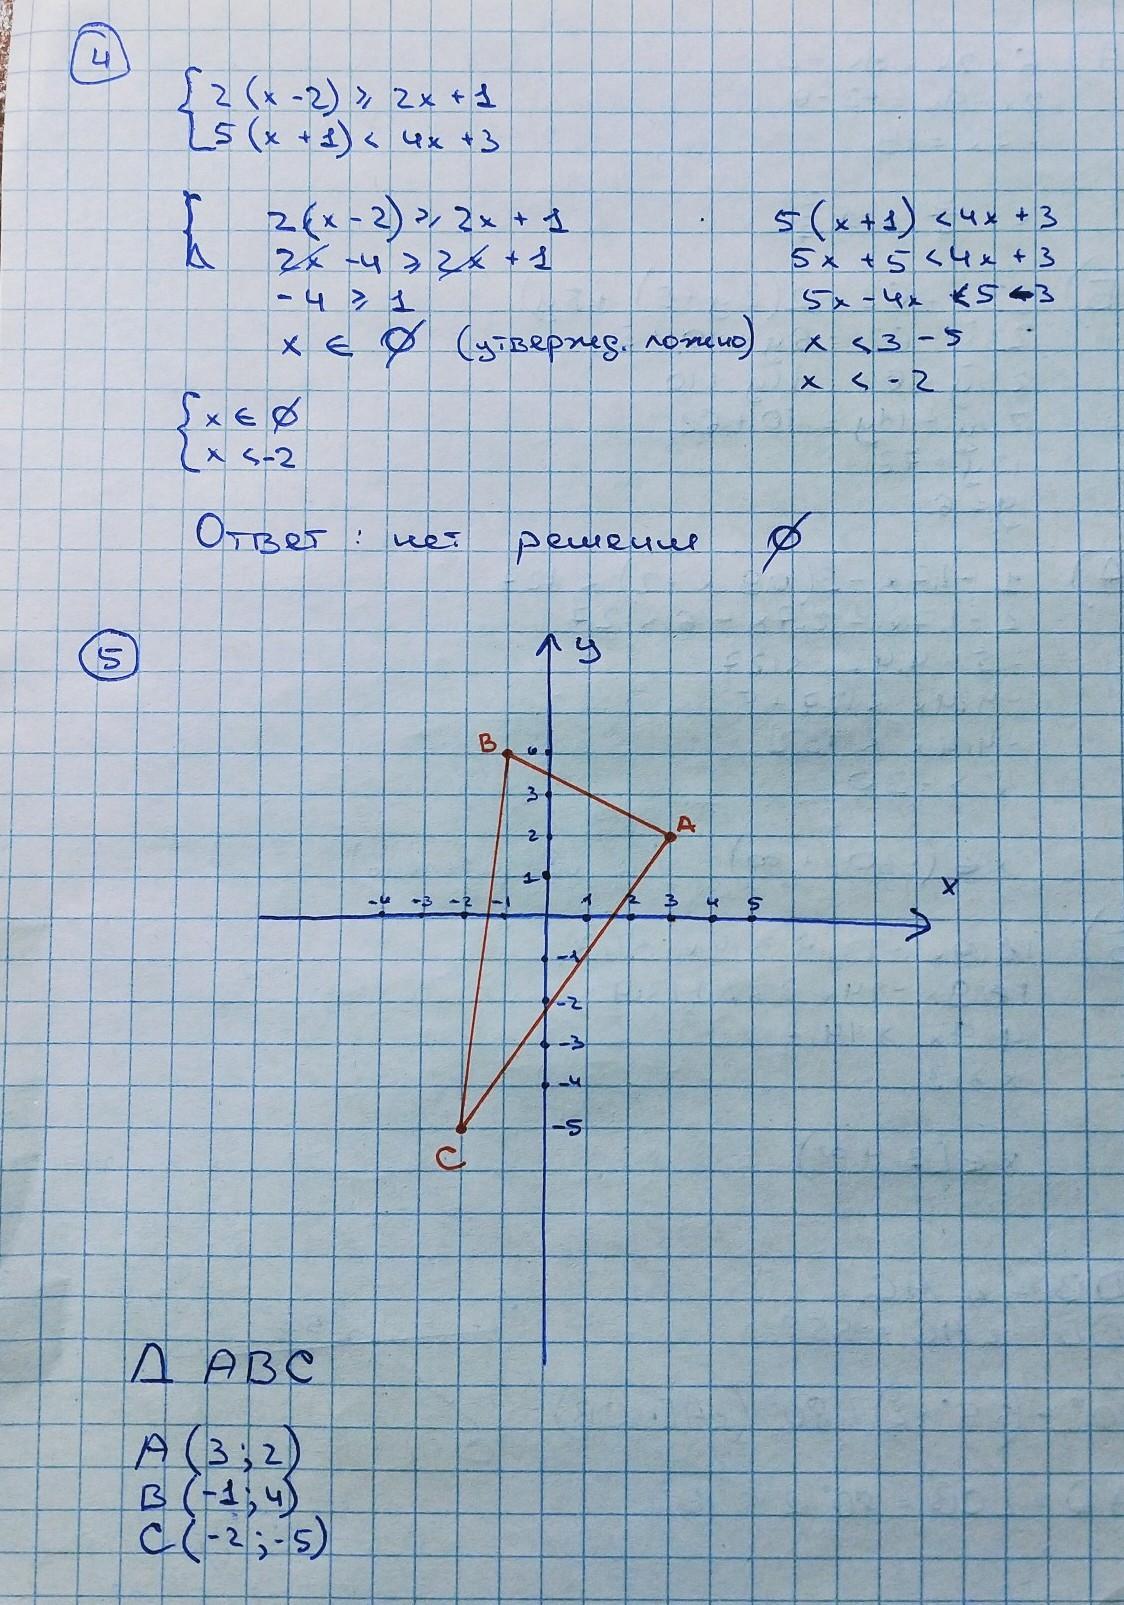 4
{ 2(x-2) ⩾ 2x+1
5(x+1) < 4x+3
{ 2(x-2) ⩾ 2x+1
2x-4 ⩾ 2x+1
-4 ⩾ 1
x ∈ ∅ (утвержд. ложно)
5(x+1) < 4x+3
5x+5 < 4x+3
x < 3-5
x < -2
{ x ∈ ∅
x < -2
Ответ: нет решения ∅
5
y
B 4
3
A
2
1
x
-4 -3 -2 -1 1 2 3 4 5
-1
-2
-3
-4
-5
C
Δ ABC
A(3;2)
B(-1;4)
C(-2;-5)